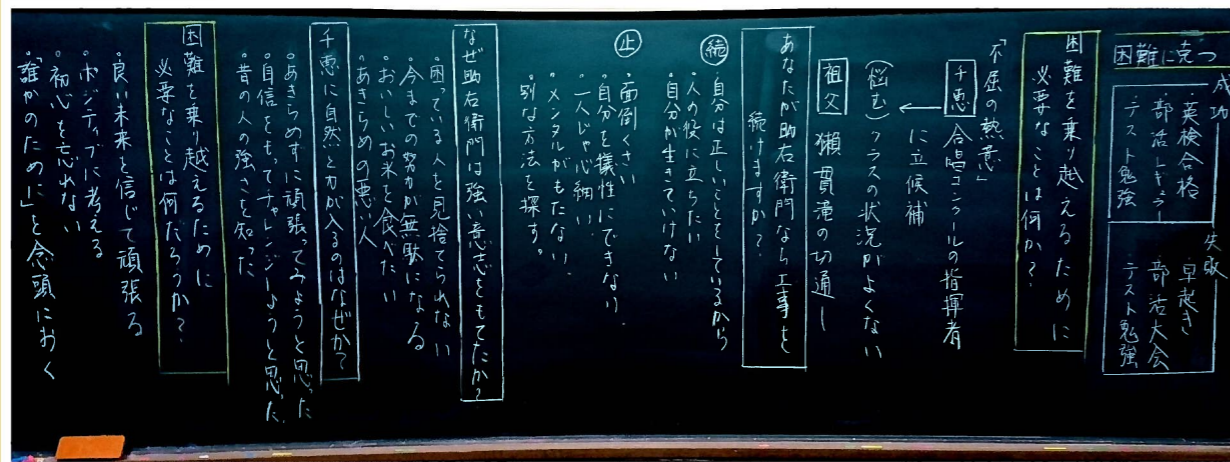 困難に克つ
成功
・英検合格
・部活レギュラー
・テスト勉強
失敗
・早起き
・部活大会
・テスト勉強
困難を乗り越えるために
必要なことは何か?
「不屈の熱意」
千恵 合唱コンクールの指揮者
に立候補
(悩む) クラスの状況がよくない
祖父 獺貫滝の切通し
あなたが助右衛門なら工事を
続けますか?
続
・自分は正しいことをしているから
・人の役に立ちたい
・自分が生きていけない
止
・面倒くさい
・自分を犠牲にできない
・一人じゃ心細い
・メンタルがもたない
・別な方法を探す。
なぜ助右衛門は強い意志をもてたか?
・困っている人を見捨てられない
・今までの努力が無駄になる
・おいしいお米を食べたい
・あきらめの悪い人
千恵に自然と力が入るのはなぜか?
・あきらめずに頑張ってみようと思った
・自信をもってチャレンジしようと思った
・昔の人の強さを知った
困難を乗り越えるために
必要なことは何だろうか?
・良い未来を信じて頑張る
・ポジティブに考える
・初心を忘れない
・「誰かのために」を念頭におく